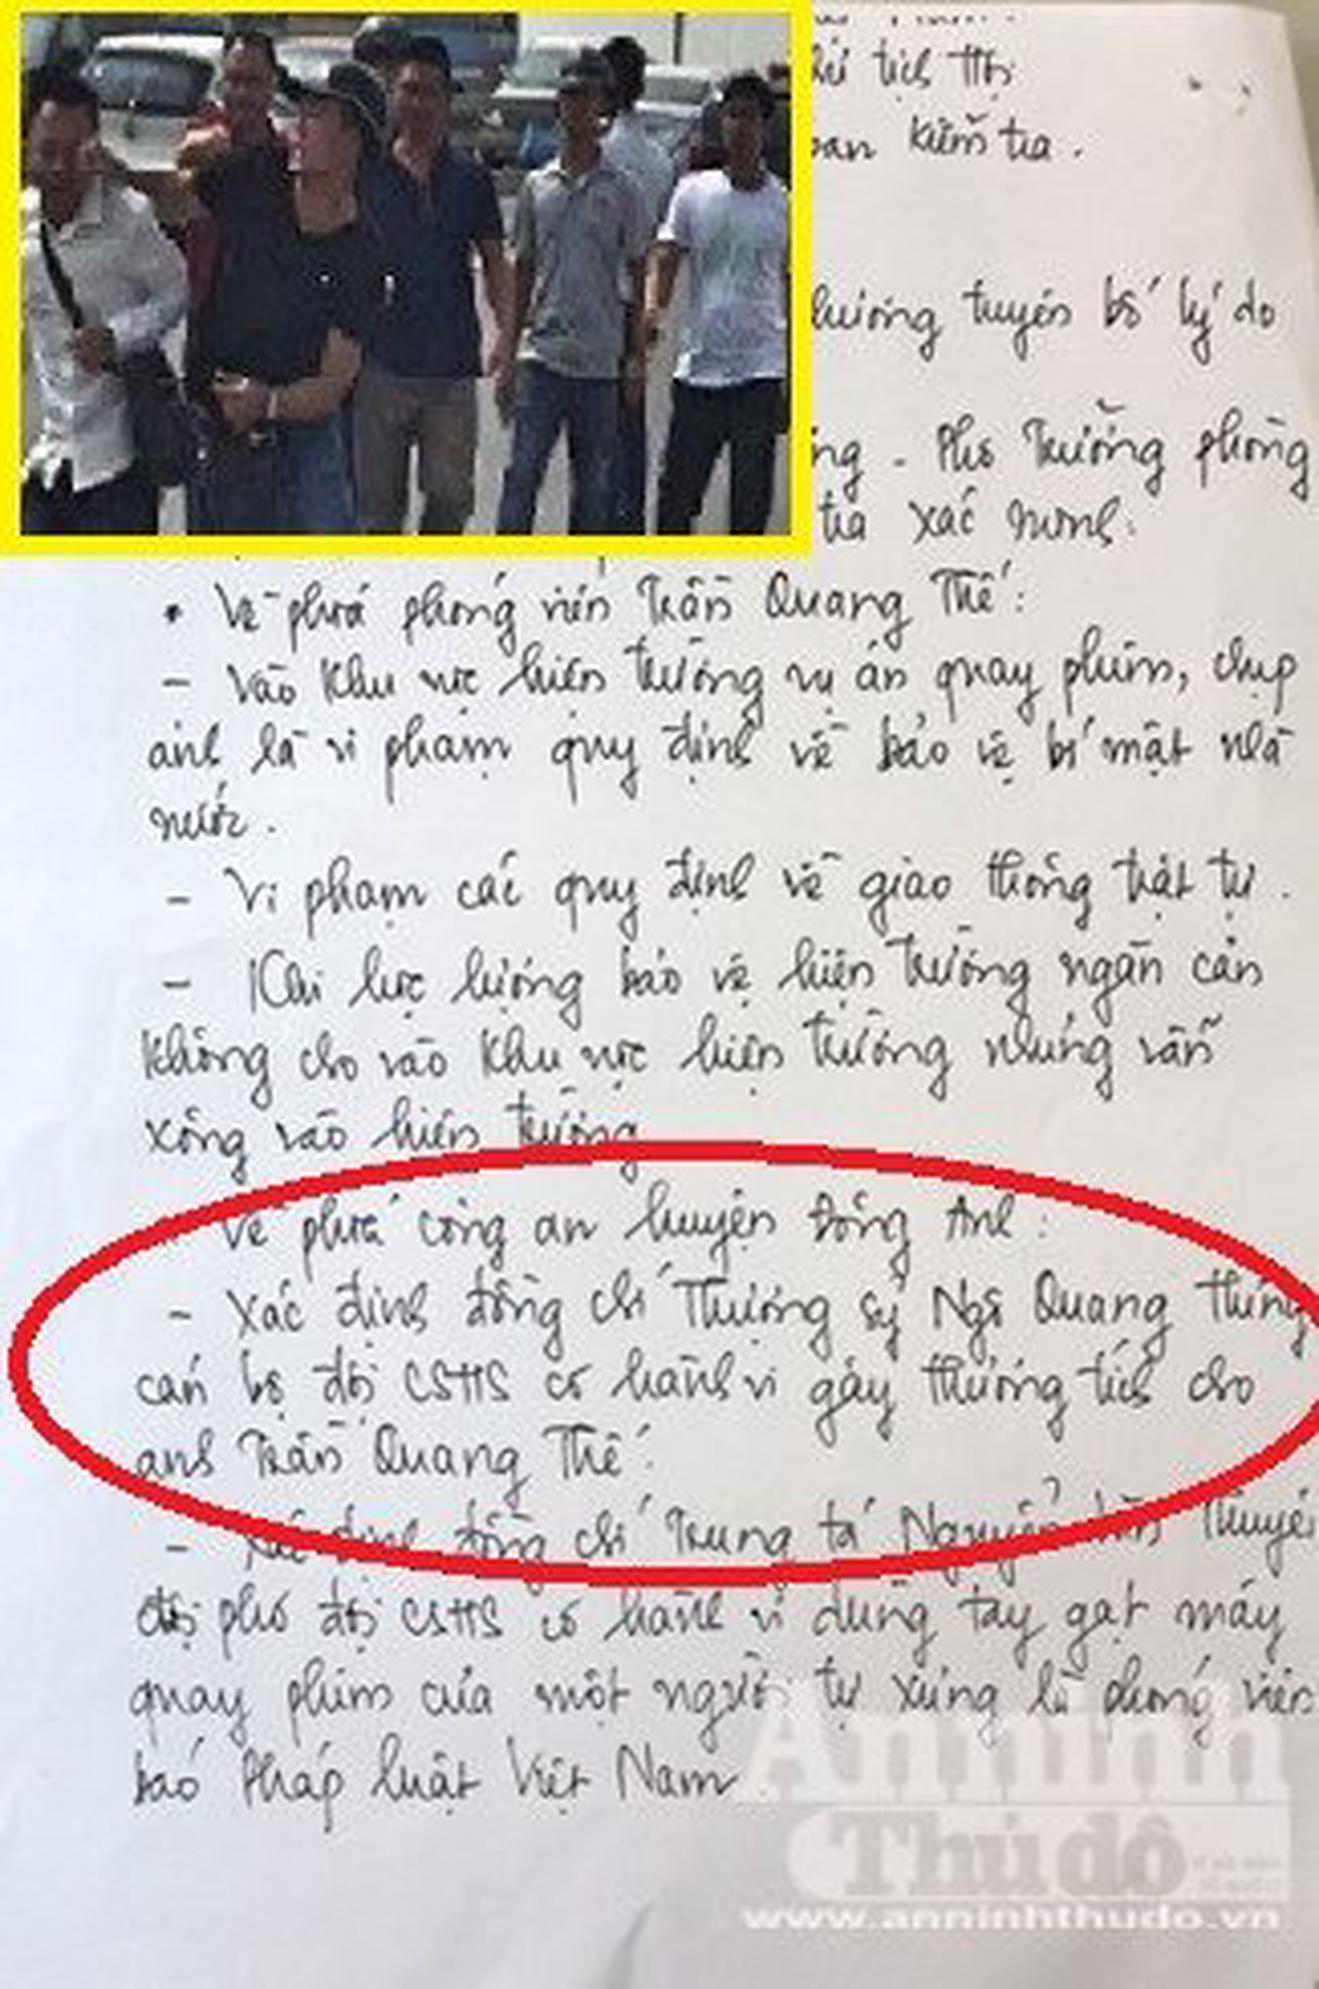 tịch thị
ban kiểm tra.
tuyên bố lý do
ng - Phó Trưởng phòng
tra xác minh:
• Về phía phóng viên Trần Quang Thế:
- Vào khu vực hiện trường vụ án quay phim, chụp
ảnh là vi phạm quy định về bảo vệ bí mật nhà
nước.
- Vi phạm các quy định về giao thông trật tự.
- Khi lực lượng bảo vệ hiện trường ngăn cản
không cho vào khu vực hiện trường nhưng vẫn
xông vào hiện trường
Về phía công an huyện Đông Anh:
- Xác định đồng chí Thượng sỹ Ngô Quang Hưng
cán bộ đội CSHS có hành vi gây thương tích cho
anh Trần Quang Thế.
- Xác định đồng chí Trung tá Nguyễn Văn Thuyên
đội phó đội CSHS có hành vi dùng tay gạt máy
quay phim của một người tự xưng là phóng viên
báo Pháp luật Việt Nam.
An ninh
Thủ đô
www.anninhthudo.vn